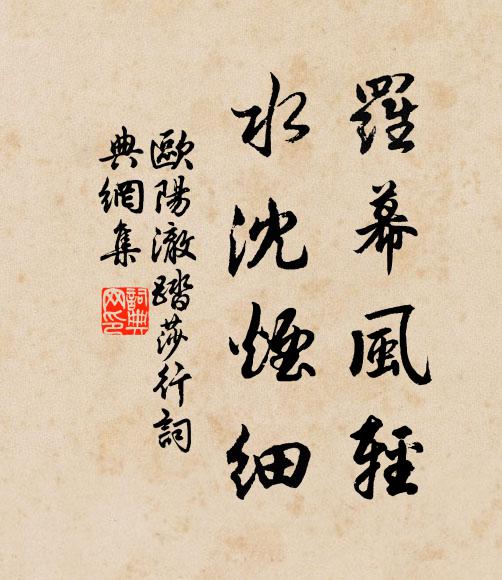 羅幕風輕
水沈煙細
歐陽澈踏莎行詞
典網集
詞典網印